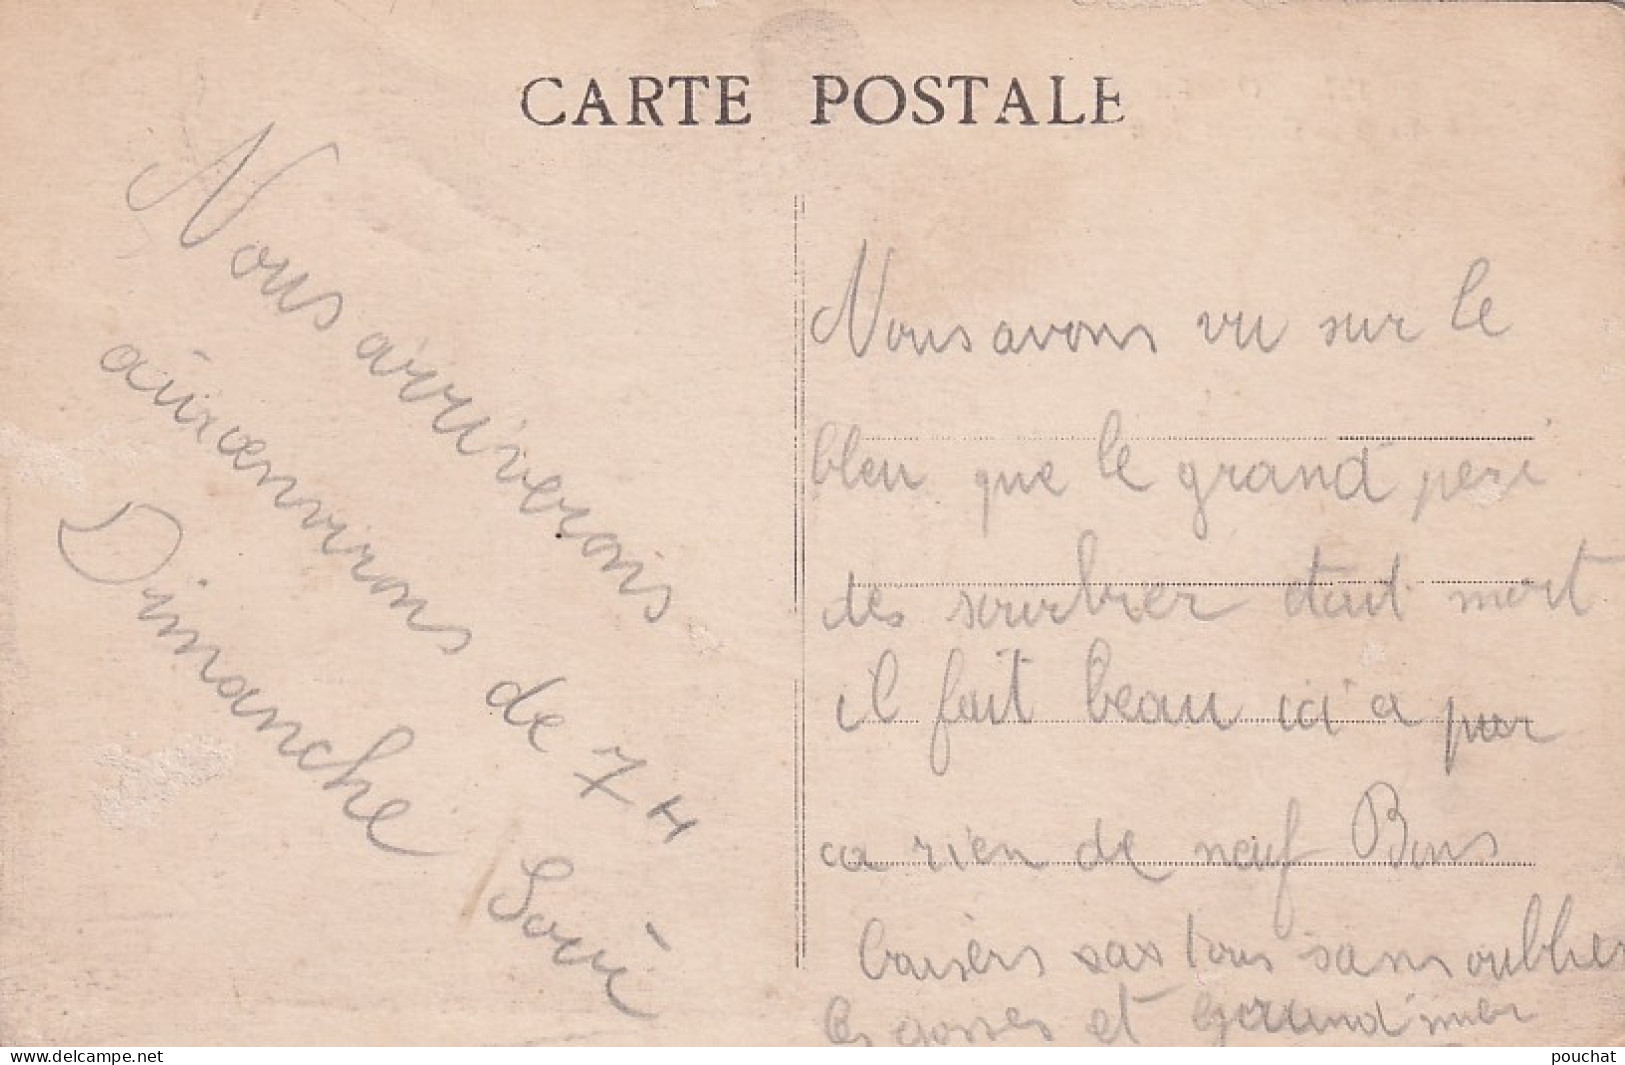 CARTE POSTALE
Nous arriverons
aux environs de 7 H
Dimanche Soir
Nous avons vu sur le
bleu que le grand peri
des sourbier etait mort
il fait beau ici a par
ca rien de neuf Bons
baisers tous sans oublier
les gosses et grand'mer
www.delcampe.net
pouchat